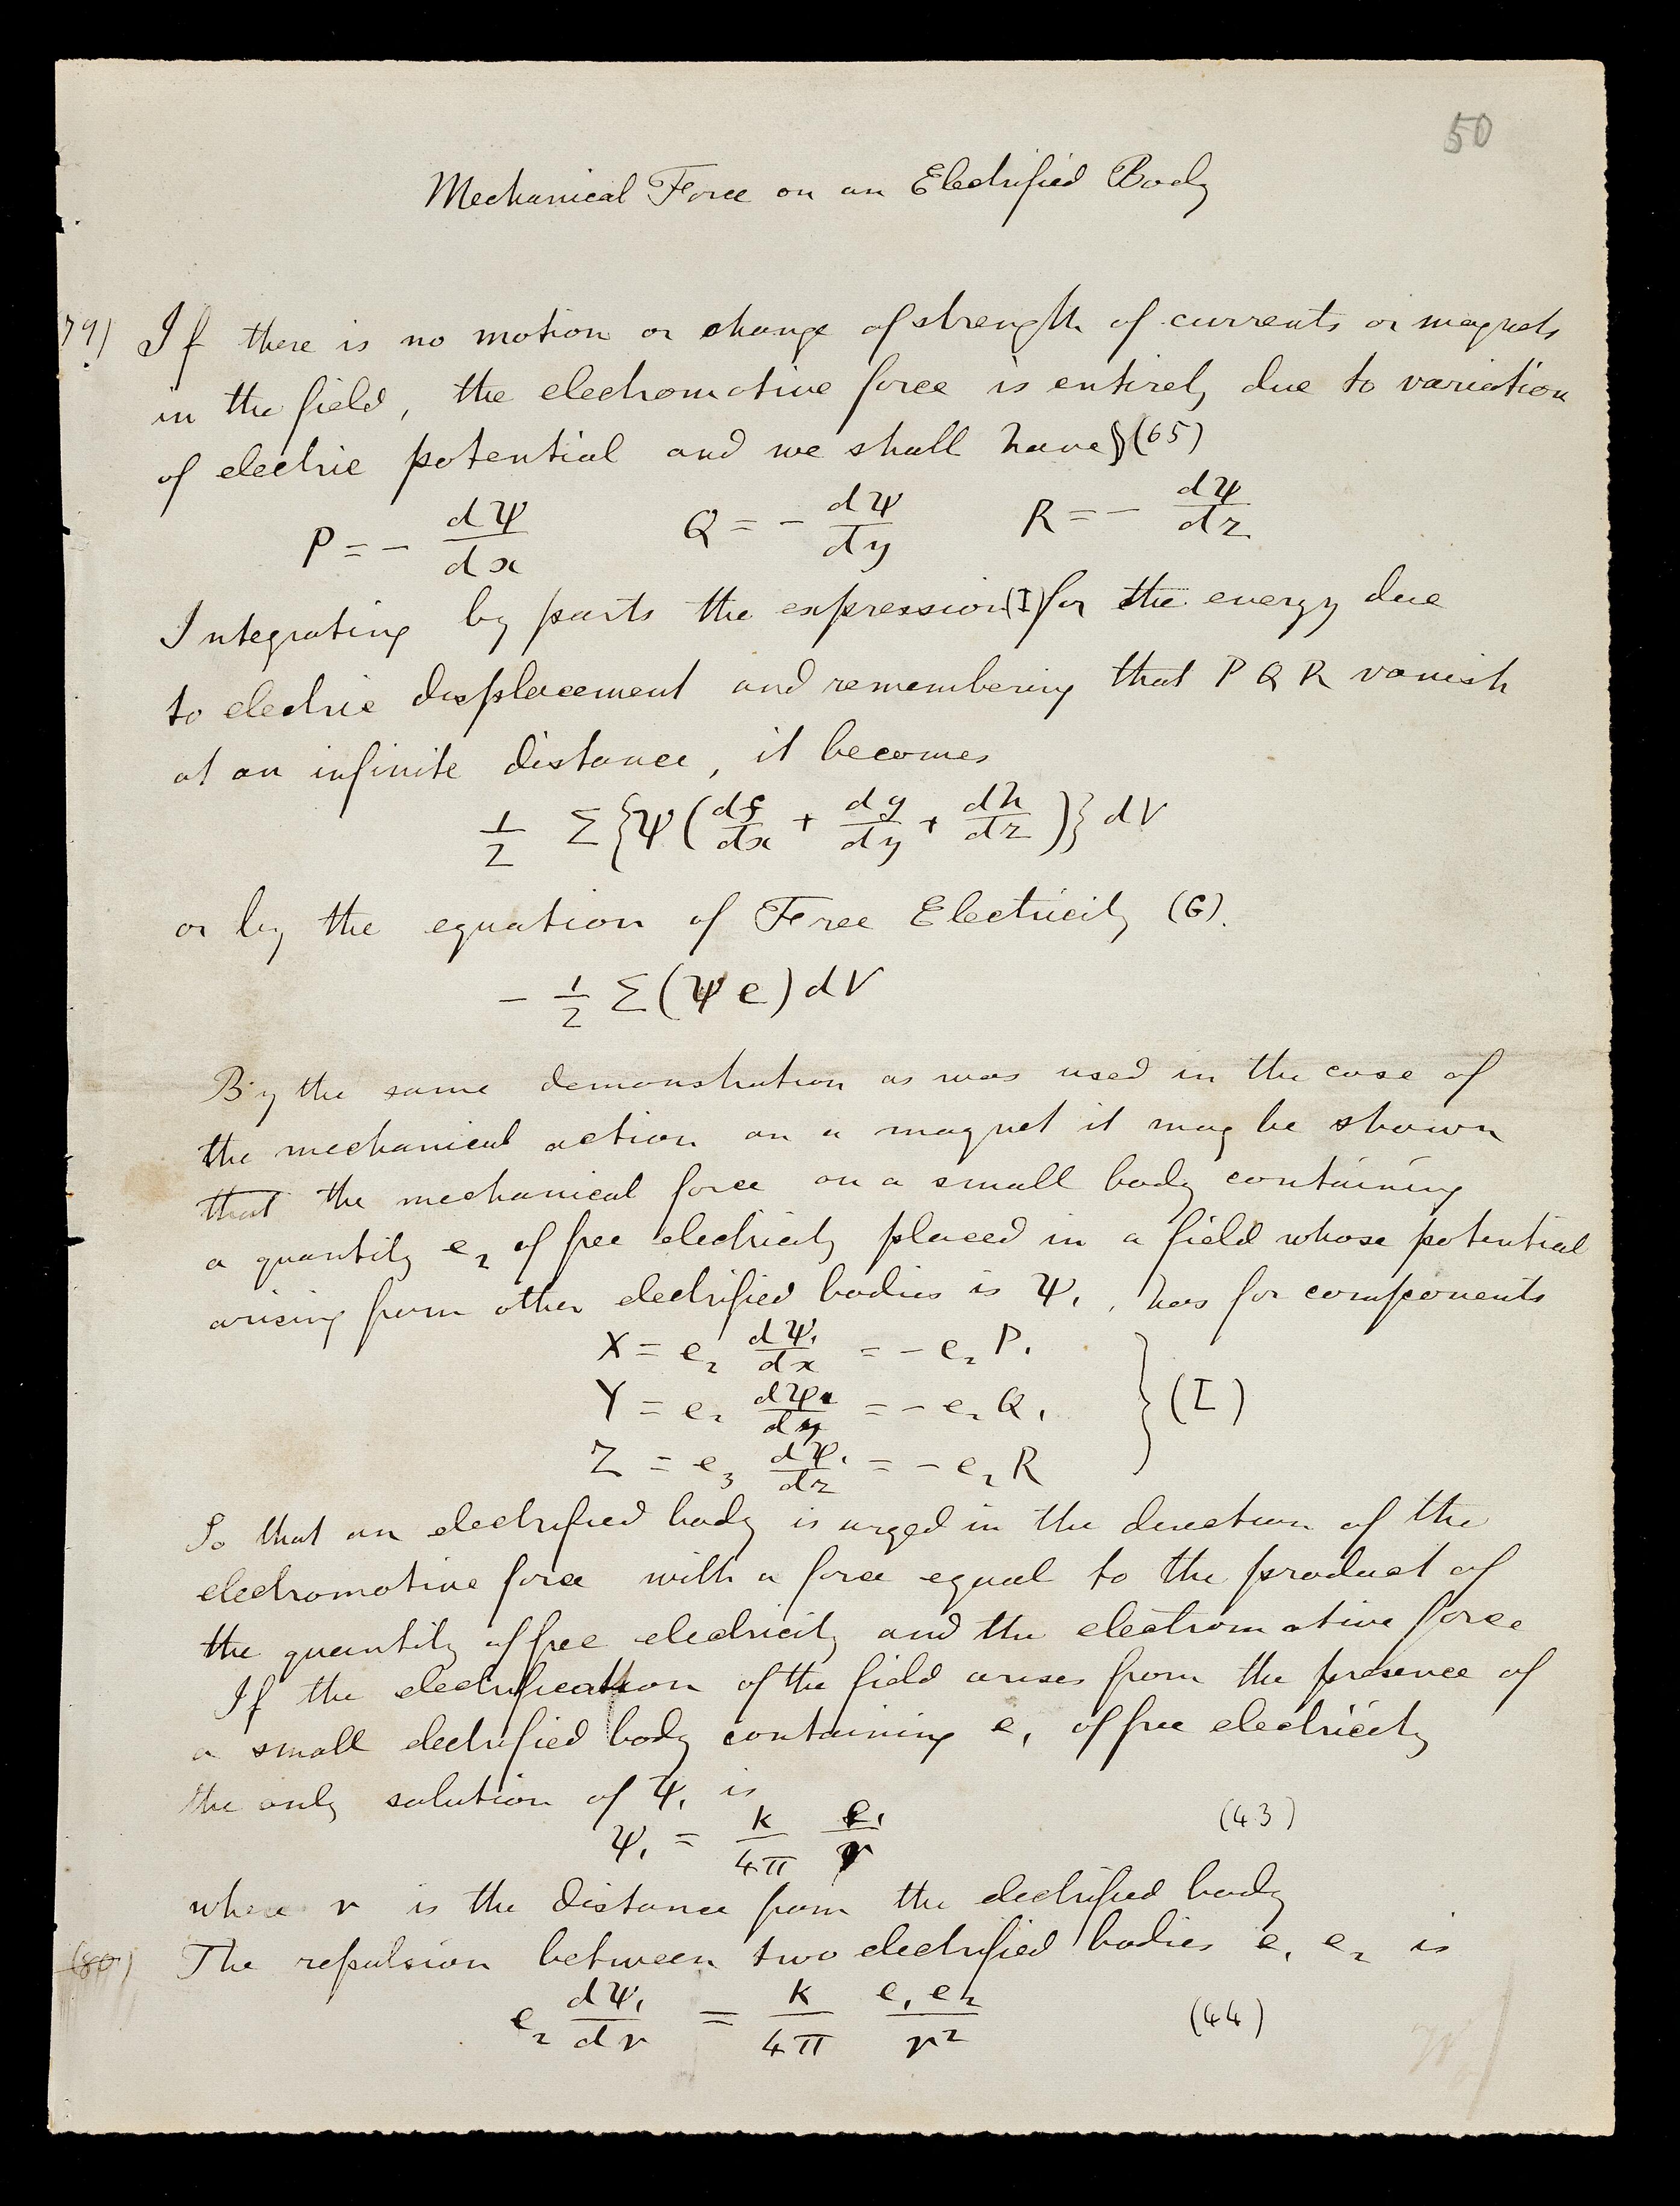 50
Mechanical Force on an Electrified Body
79) If there is no motion or change of strength of currents or magnets
in the field, the electromotive force is entirely due to variation
of electric potential and we shall have §(65)
P = - dΨ/dx Q = - dΨ/dy R = - dΨ/dz
Integrating by parts the expression (I) for the energy due
to electric displacement and remembering that P Q R vanish
at an infinite distance, it becomes
1/2 Σ{Ψ(df/dx + dg/dy + dh/dz)} dV
or by the equation of Free Electricity (G).
- 1/2 Σ(Ψ e) dV
By the same demonstration as was used in the case of
the mechanical action on a magnet it may be shown
that the mechanical force on a small body containing
a quantity e₂ of free electricity placed in a field whose potential
arising from other electrified bodies is Ψ₁, has for components
X = e₂ dΨ₁/dx = - e₂ P₁
Y = e₂ dΨ₁/dy = - e₂ Q₁ } (I)
Z = e₃ dΨ₁/dz = - e₂ R
So that an electrified body is urged in the direction of the
electromotive force with a force equal to the product of
the quantity of free electricity and the electromotive force
If the electrification of the field arises from the presence of
a small electrified body containing e₁ of free electricity
the only solution of Ψ₁ is
Ψ₁ = k/4π e₁/r (43)
where r is the distance from the electrified body
(80) The repulsion between two electrified bodies e₁ e₂ is
e₂ dΨ₁/dr = k/4π e₁e₂/r² (44)